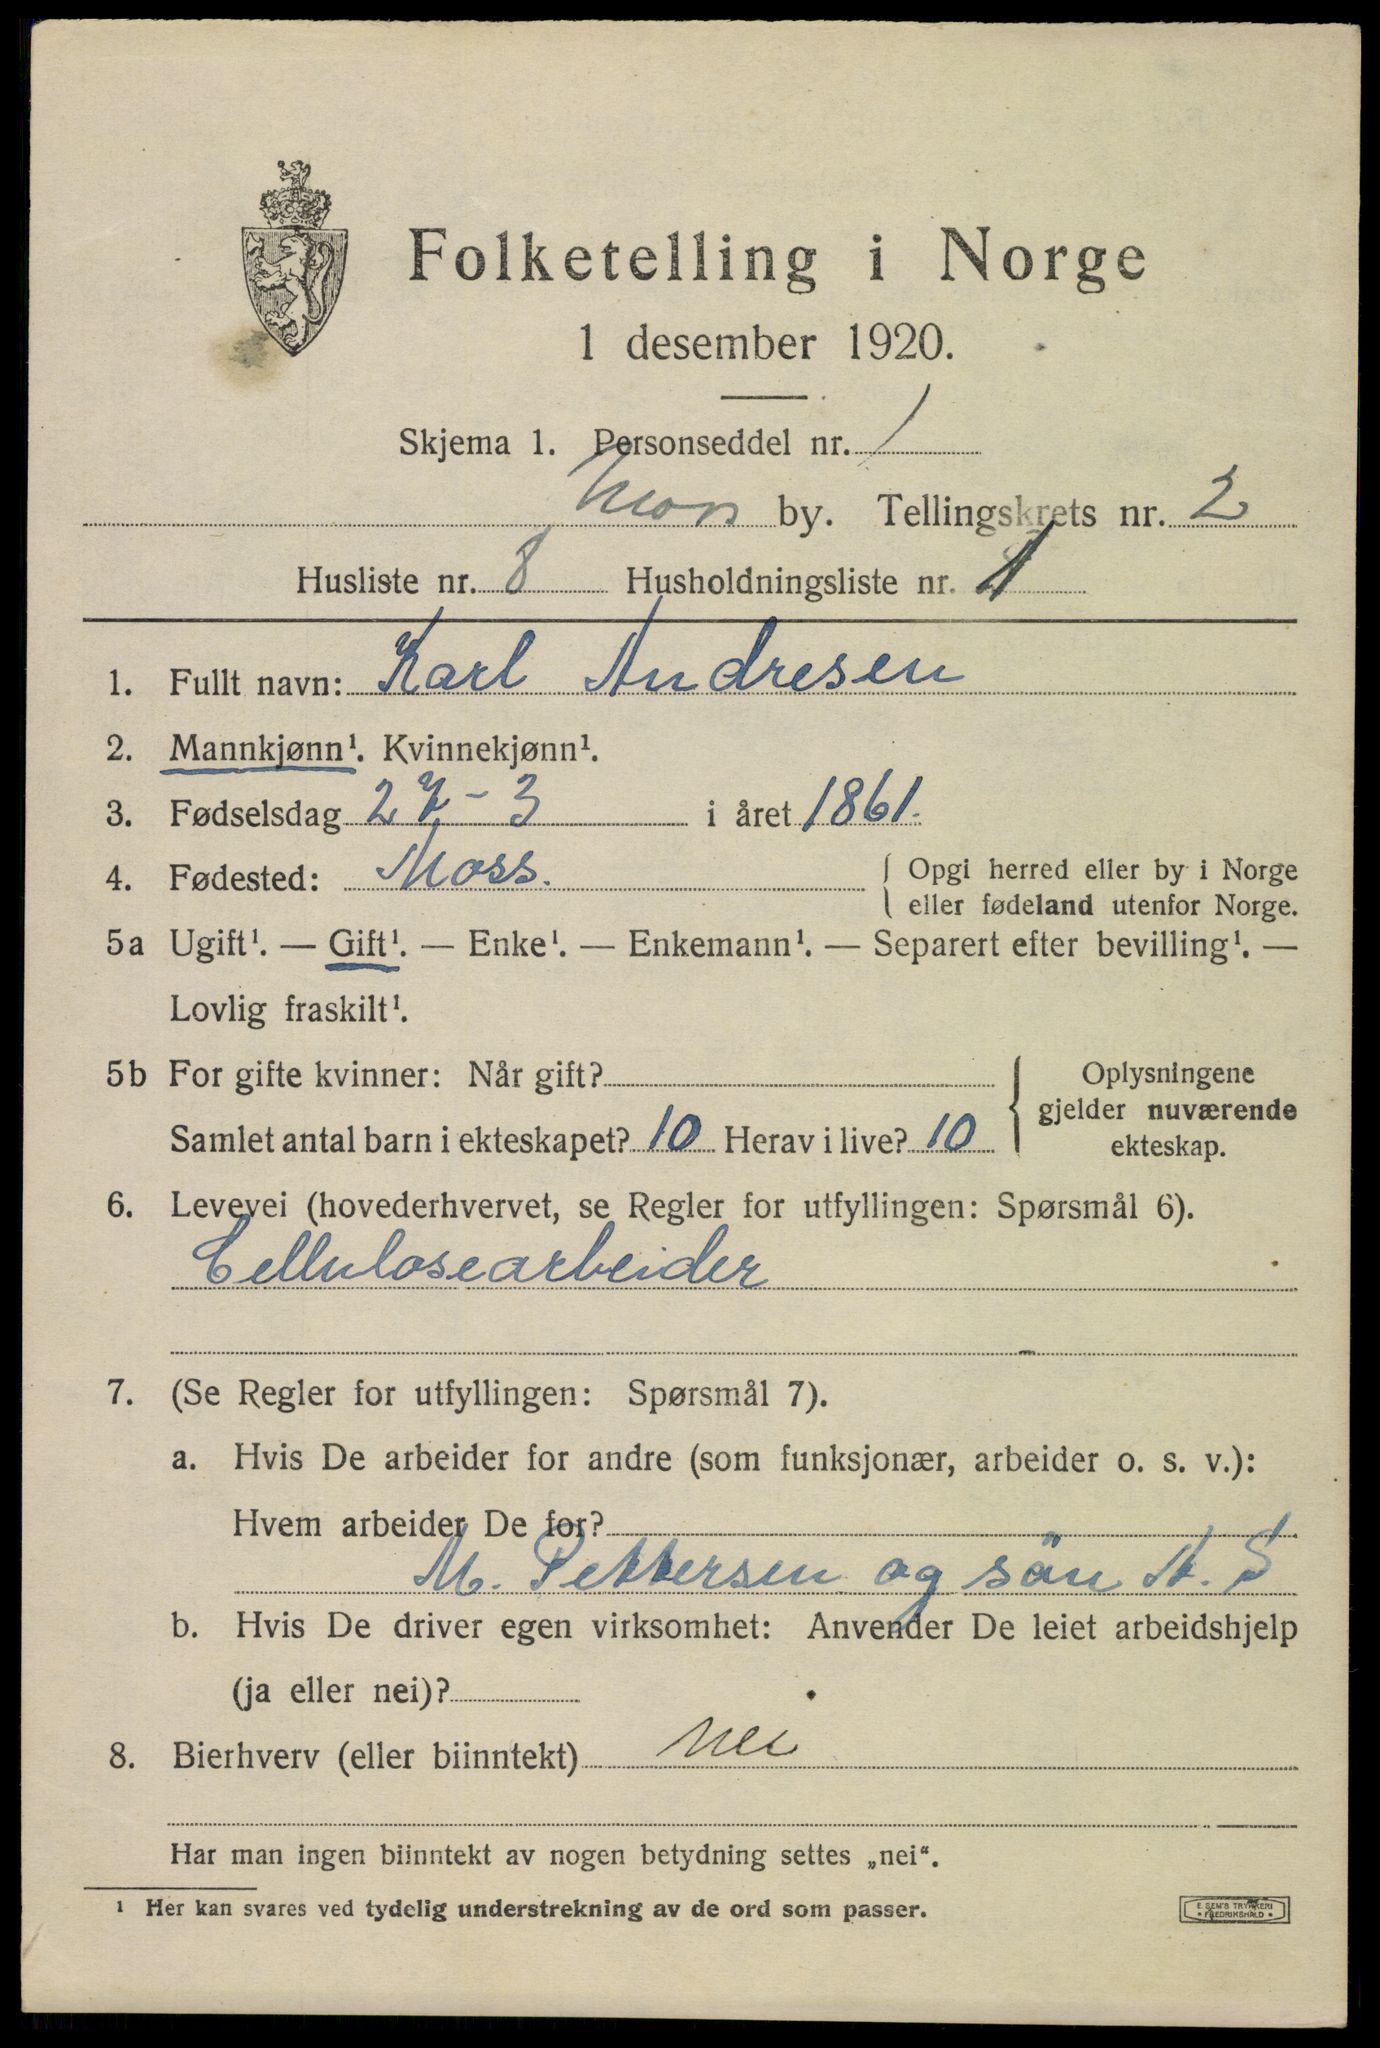 Folketelling i Norge
1 desember 1920.
Skjema 1. Personseddel nr. 1
Moss by. Tellingskrets nr. 2
Husliste nr. 8 Husholdningsliste nr. 1
1. Fullt navn: Karl Andresen
2. Mannkjønn¹. Kvinnekjønn¹.
3. Fødselsdag 27-3 i året 1861.
4. Fødested: Moss. { Opgi herred eller by i Norge
eller fødeland utenfor Norge.
5a Ugift¹. — Gift¹. — Enke¹. — Enkemann¹. — Separert efter bevilling¹. —
Lovlig fraskilt¹.
5b For gifte kvinner: Når gift? { Oplysningene
gjelder nuværende
Samlet antal barn i ekteskapet? 10 Herav i live? 10 ekteskap.
6. Levevei (hovederhvervet, se Regler for utfyllingen: Spørsmål 6).
Cellulosearbeider
7. (Se Regler for utfyllingen: Spørsmål 7).
a. Hvis De arbeider for andre (som funksjonær, arbeider o. s. v.):
Hvem arbeider De for?
M. Pettersen og sön A. S
b. Hvis De driver egen virksomhet: Anvender De leiet arbeidshjelp
(ja eller nei)?
8. Bierhverv (eller biinntekt) nei
Har man ingen biinntekt av nogen betydning settes „nei“.
¹ Her kan svares ved tydelig understrekning av de ord som passer.
E. SEM'S TRYKKERI
* FREDRIKSHALD *